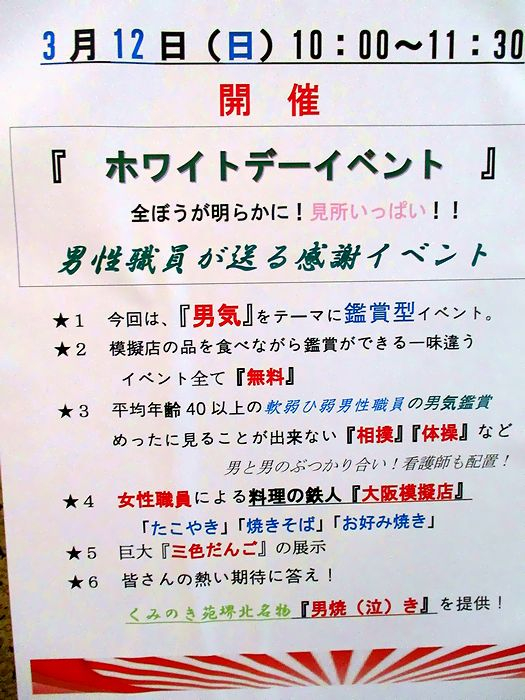 3月12日（日）10：00～11：30
開 催
『 ホワイトデーイベント 』
全ぼうが明らかに！見所いっぱい！！
男性職員が送る感謝イベント
★1 今回は、『男気』をテーマに鑑賞型イベント。
★2 模擬店の品を食べながら鑑賞ができる一味違う
イベント全て『無料』
★3 平均年齢40以上の軟弱ひ弱男性職員の男気鑑賞
めったに見ることが出来ない『相撲』『体操』など
男と男のぶつかり合い！看護師も配置！
★4 女性職員による料理の鉄人『大阪模擬店』
「たこやき」「焼きそば」「お好み焼き」
★5 巨大『三色だんご』の展示
★6 皆さんの熱い期待に答え！
くみのき苑堺北名物『男焼（泣）き』を提供！